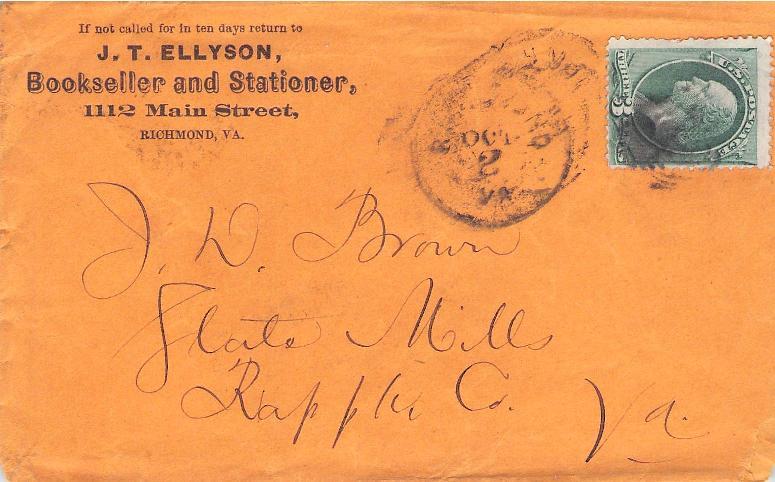 If not called for in ten days return to
J. T. ELLYSON,
Bookseller and Stationer,
1112 Main Street,
RICHMOND, VA.
OCT
2
VA
U.S. POSTAGE
3
J. W. Brown
Slate Mills
Rapp Co. Va.